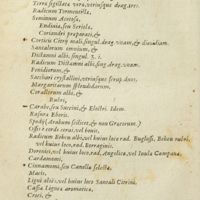 Terra sigillata vera, vtriusque drag. tres.
Radicum Tormentilla,
Seminum Acetosa,
Endiuia, seu Seriola,
Coriandri præparati, &
Corticis Citrij mali, singul. drag. vnam, & dimidiam.
Santalorum omnium, &
Dictamni albi, singul. ℈. i.
Radicum Dictamni albi, sing. drag. vnam,
Fenderium, &
Sacchari crystallini, vtriusque scrup. duos,
Margaritarum splendidarum,
Corallorum albi, &
Rubri,
Carabe, seu Succini, & Electri. Idem.
Rasura Eboris.
Spodij Arabum scilicet, & non Græcorum.
Ossis cordis cerui, vel bouis,
Radicum Behen albi, vel huius loco rad. Buglossi, Behen rubri,
vel huius loco rad. Boraginis,
Doronici, vel huius loco rad. Angelica, vel Inula Campana.
Cardamomi,
Cinnamomi, seu Canella selecta.
Macis,
Ligni aloës, vel huius loco Santali Citrini.
Cassia Lignea aromatica,
Croci, &